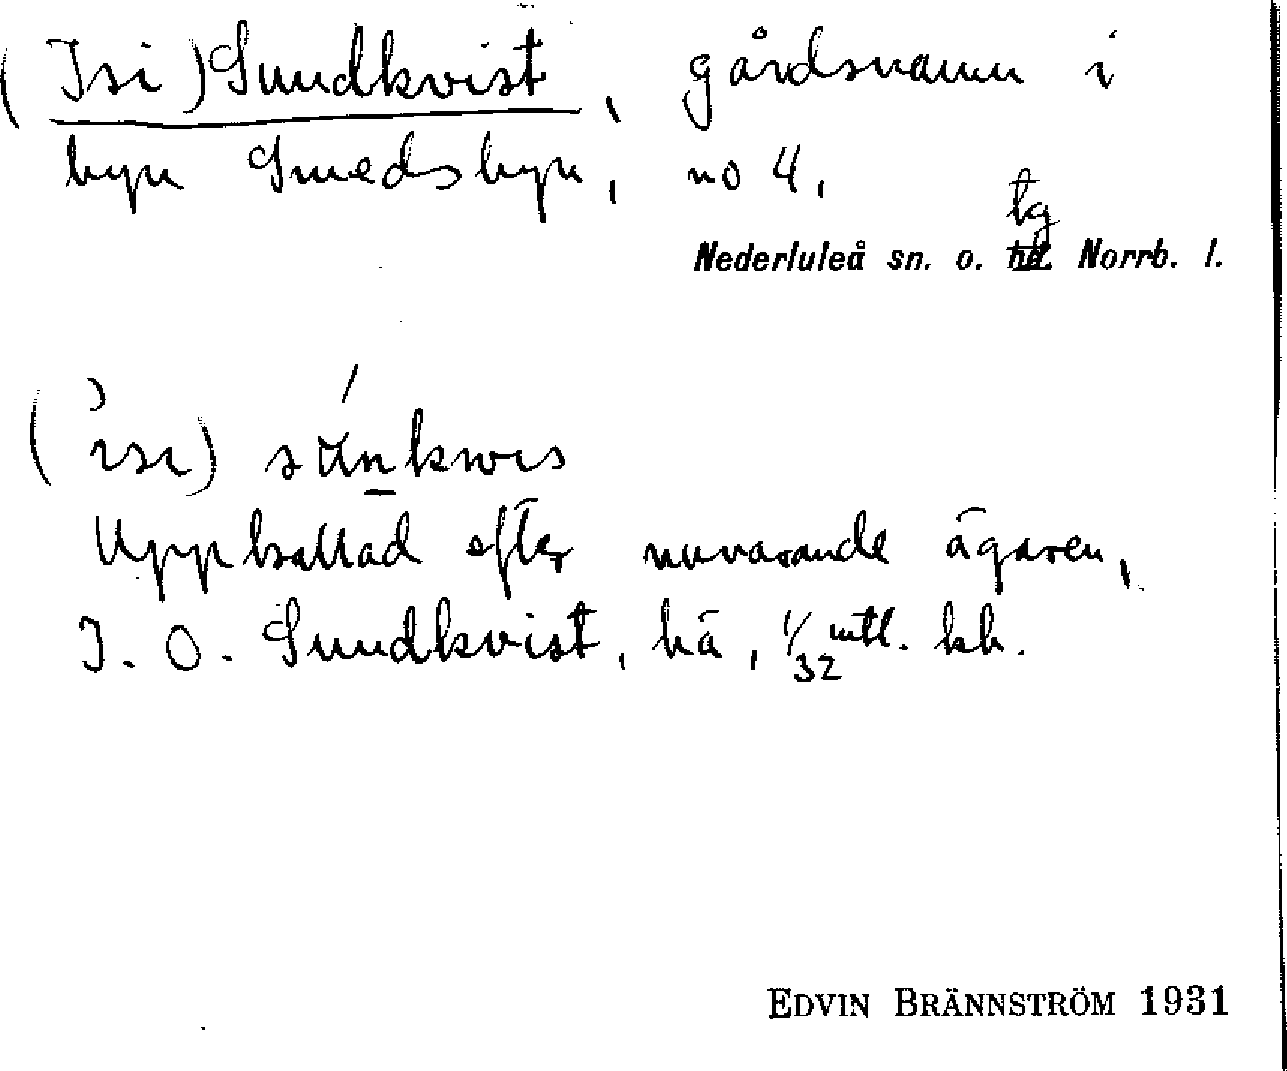 (Isi) Sundkvist, gårdsnamn i
byn Smedsbyn, no 4.
tg
Nederluleå sn. o. hd. Norrb. l.
(isi) sunkwis
Uppkallad efter nuvarande ägaren,
I. O. Sundkvist, hä, 1/32 mtl. kh.
EDVIN BRÄNNSTRÖM 1931